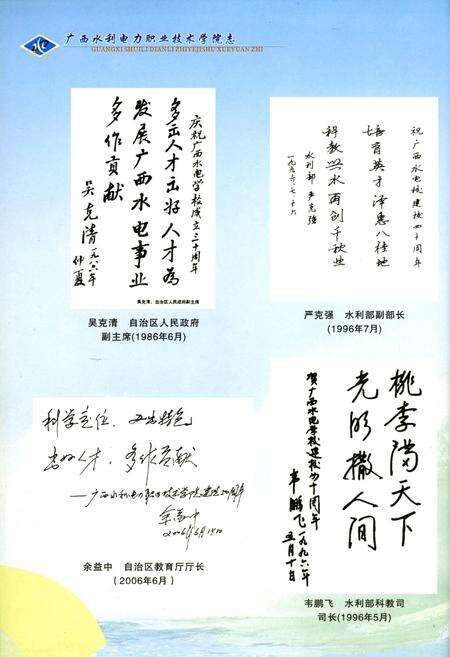 广西水利电力职业技术学院志
GUANGXI SHUILI DIANLI ZHIYEJISHU XUEYUAN ZHI
庆祝广西水电学校成立三十周年
多出人才出好人才为
发展广西水电事业
多作贡献
吴克清
一九八六年
仲夏
吴克清：自治区人民政府副主席
吴克清 自治区人民政府
副主席(1986年6月)
祝广西水电校建校四十周年
培育英才泽惠八桂地
科教兴水再创千秋业
水利部 严克强
一九九六.七.十六
严克强 水利部副部长
(1996年7月)
科学定位、办出特色
出好人才、多作贡献
——广西水利电力职业技术学院建院50周年
余益中
2006年6月14日
余益中 自治区教育厅厅长
(2006年6月)
桃李满天下
光明撒人间
贺广西水电学校建校四十周年
韦鹏飞
一九九六年
五月十日
韦鹏飞 水利部科教司
司长(1996年5月)